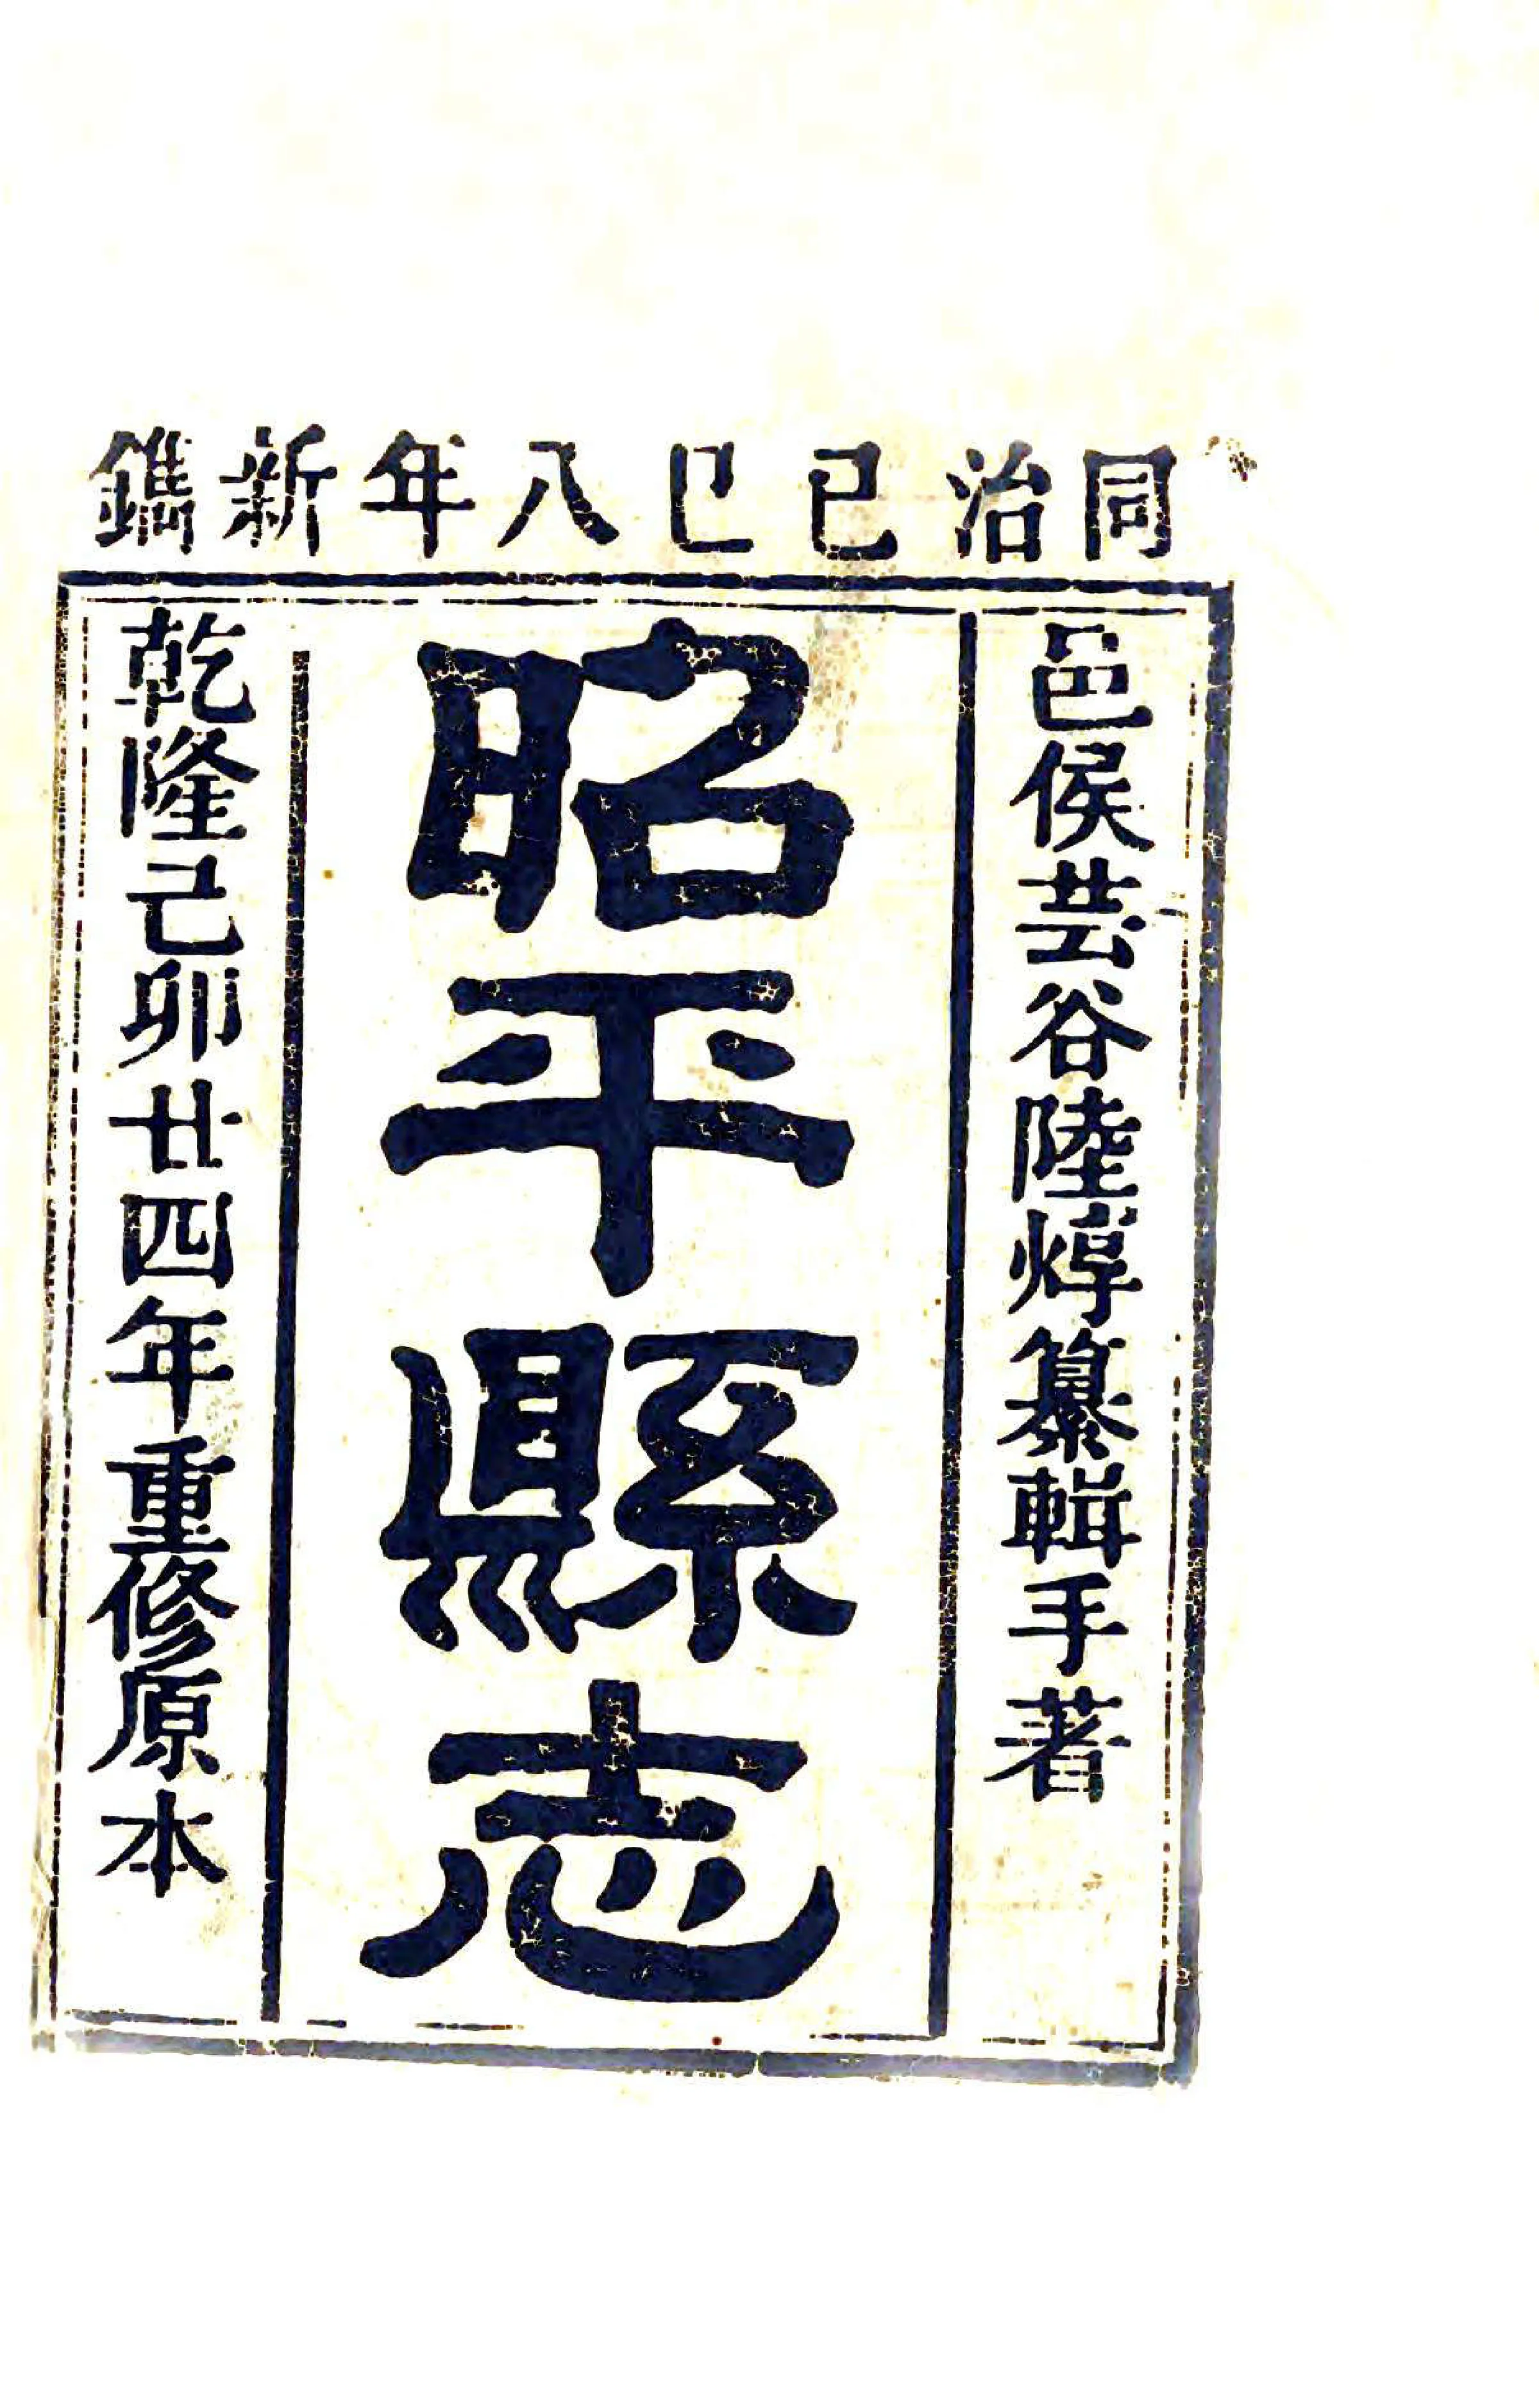 同治己巳八年新鐫
邑侯芸谷陸焞纂輯手著
昭平縣志
乾隆己卯廿四年重修原本